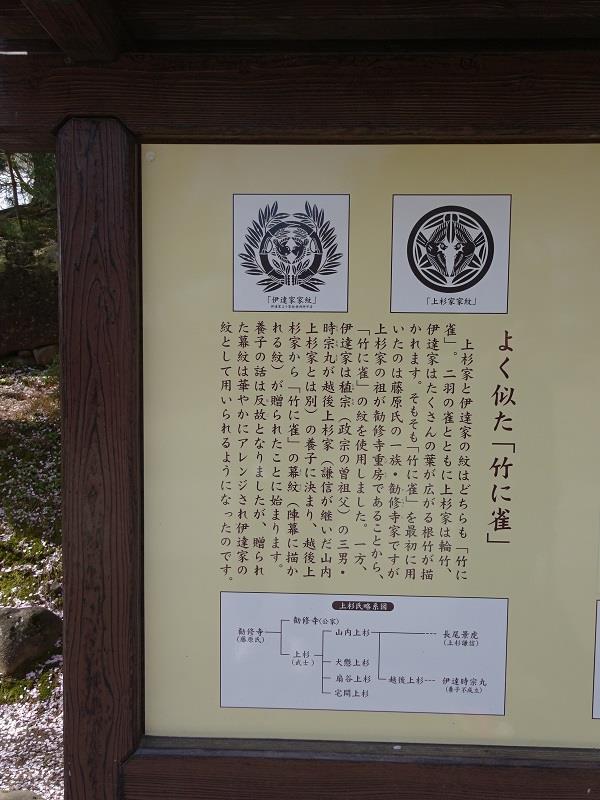 よく似た「竹に雀」
上杉家と伊達家の紋はどちらも「竹に
雀」。二羽の雀とともに上杉家は輪竹、
伊達家はたくさんの葉が広がる根竹が描
かれます。そもそも「竹に雀」を最初に用
いたのは藤原氏の一族・勧修寺家ですが
上杉家の祖が勧修寺重房であることから、
「竹に雀」の紋を使用しました。一方、
伊達家は稙宗（政宗の曽祖父）の三男・
時宗丸が越後上杉家（謙信が継いだ山内
上杉家とは別）の養子に決まり、越後上
杉家から「竹に雀」の幕紋（陣幕に描か
れる紋）が贈られたことに始まります。
養子の話は反故となりましたが、贈られ
た幕紋は華やかにアレンジされ伊達家の
紋として用いられるようになったのです。
「上杉家家紋」
「伊達家家紋」
上杉氏略系図
勧修寺
(藤原氏)
勧修寺(公家)
上杉
(武士)
山内上杉
犬懸上杉
扇谷上杉
宅間上杉
越後上杉
長尾景虎
(上杉謙信)
伊達時宗丸
(養子不成立)